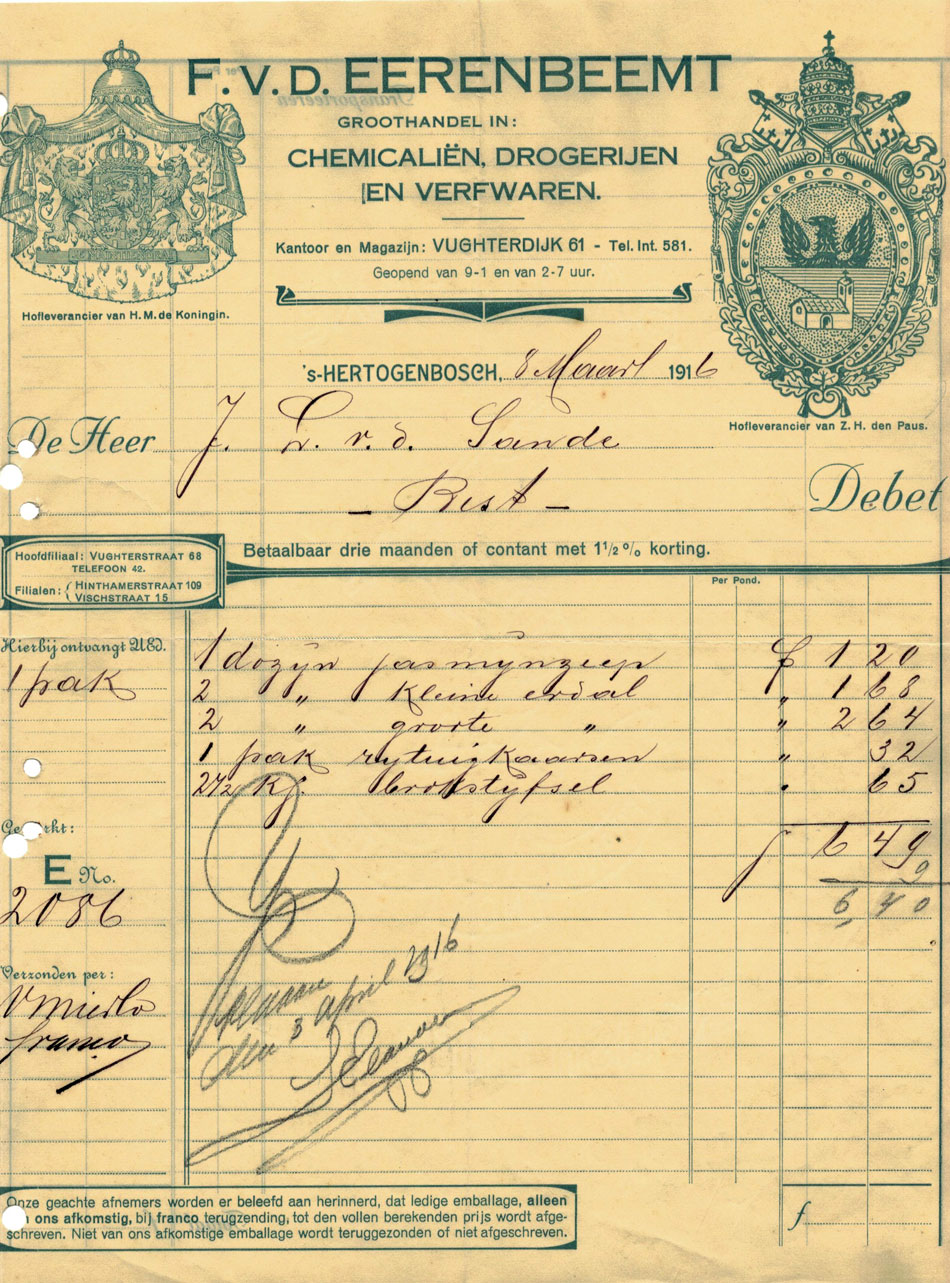 F. v. d. EERENBEEMT
GROOTHANDEL IN:
CHEMICALIËN, DROGERIJEN
EN VERFWAREN.
Kantoor en Magazijn: VUGHTERDIJK 61 - Tel. Int. 581.
Geopend van 9-1 en van 2-7 uur.
Hofleverancier van H. M. de Koningin.
Hofleverancier van Z. H. den Paus.
's-HERTOGENBOSCH, 8 Maart 1916
De Heer J. L. v. d. Sande
- Best -
Debet
Hoofdfiliaal: VUGHTERSTRAAT 68
TELEFOON 42.
Filialen: HINTHAMERSTRAAT 109
VISCHSTRAAT 15
Betaalbaar drie maanden of contant met 1 1/2 % korting.
Per Pond.
Hierbij ontvangt UEd.
1 pak
1 dozijn jasmijnzeep f 1 20
2 " kleine erdal " 1 68
2 " groote " " 2 64
1 pak rytuigkaarsen " 32
2 1/2 Kg. brokstijfsel " 65
f 6 49
9
6 40
Gemerkt:
E No.
2086
Verzonden per:
V Mierlo
franco
den 3 april 1916
Onze geachte afnemers worden er beleefd aan herinnerd, dat ledige emballage, alleen
van ons afkomstig, bij franco terugzending, tot den vollen berekenden prijs wordt afge-
schreven. Niet van ons afkomstige emballage wordt teruggezonden of niet afgeschreven.
f